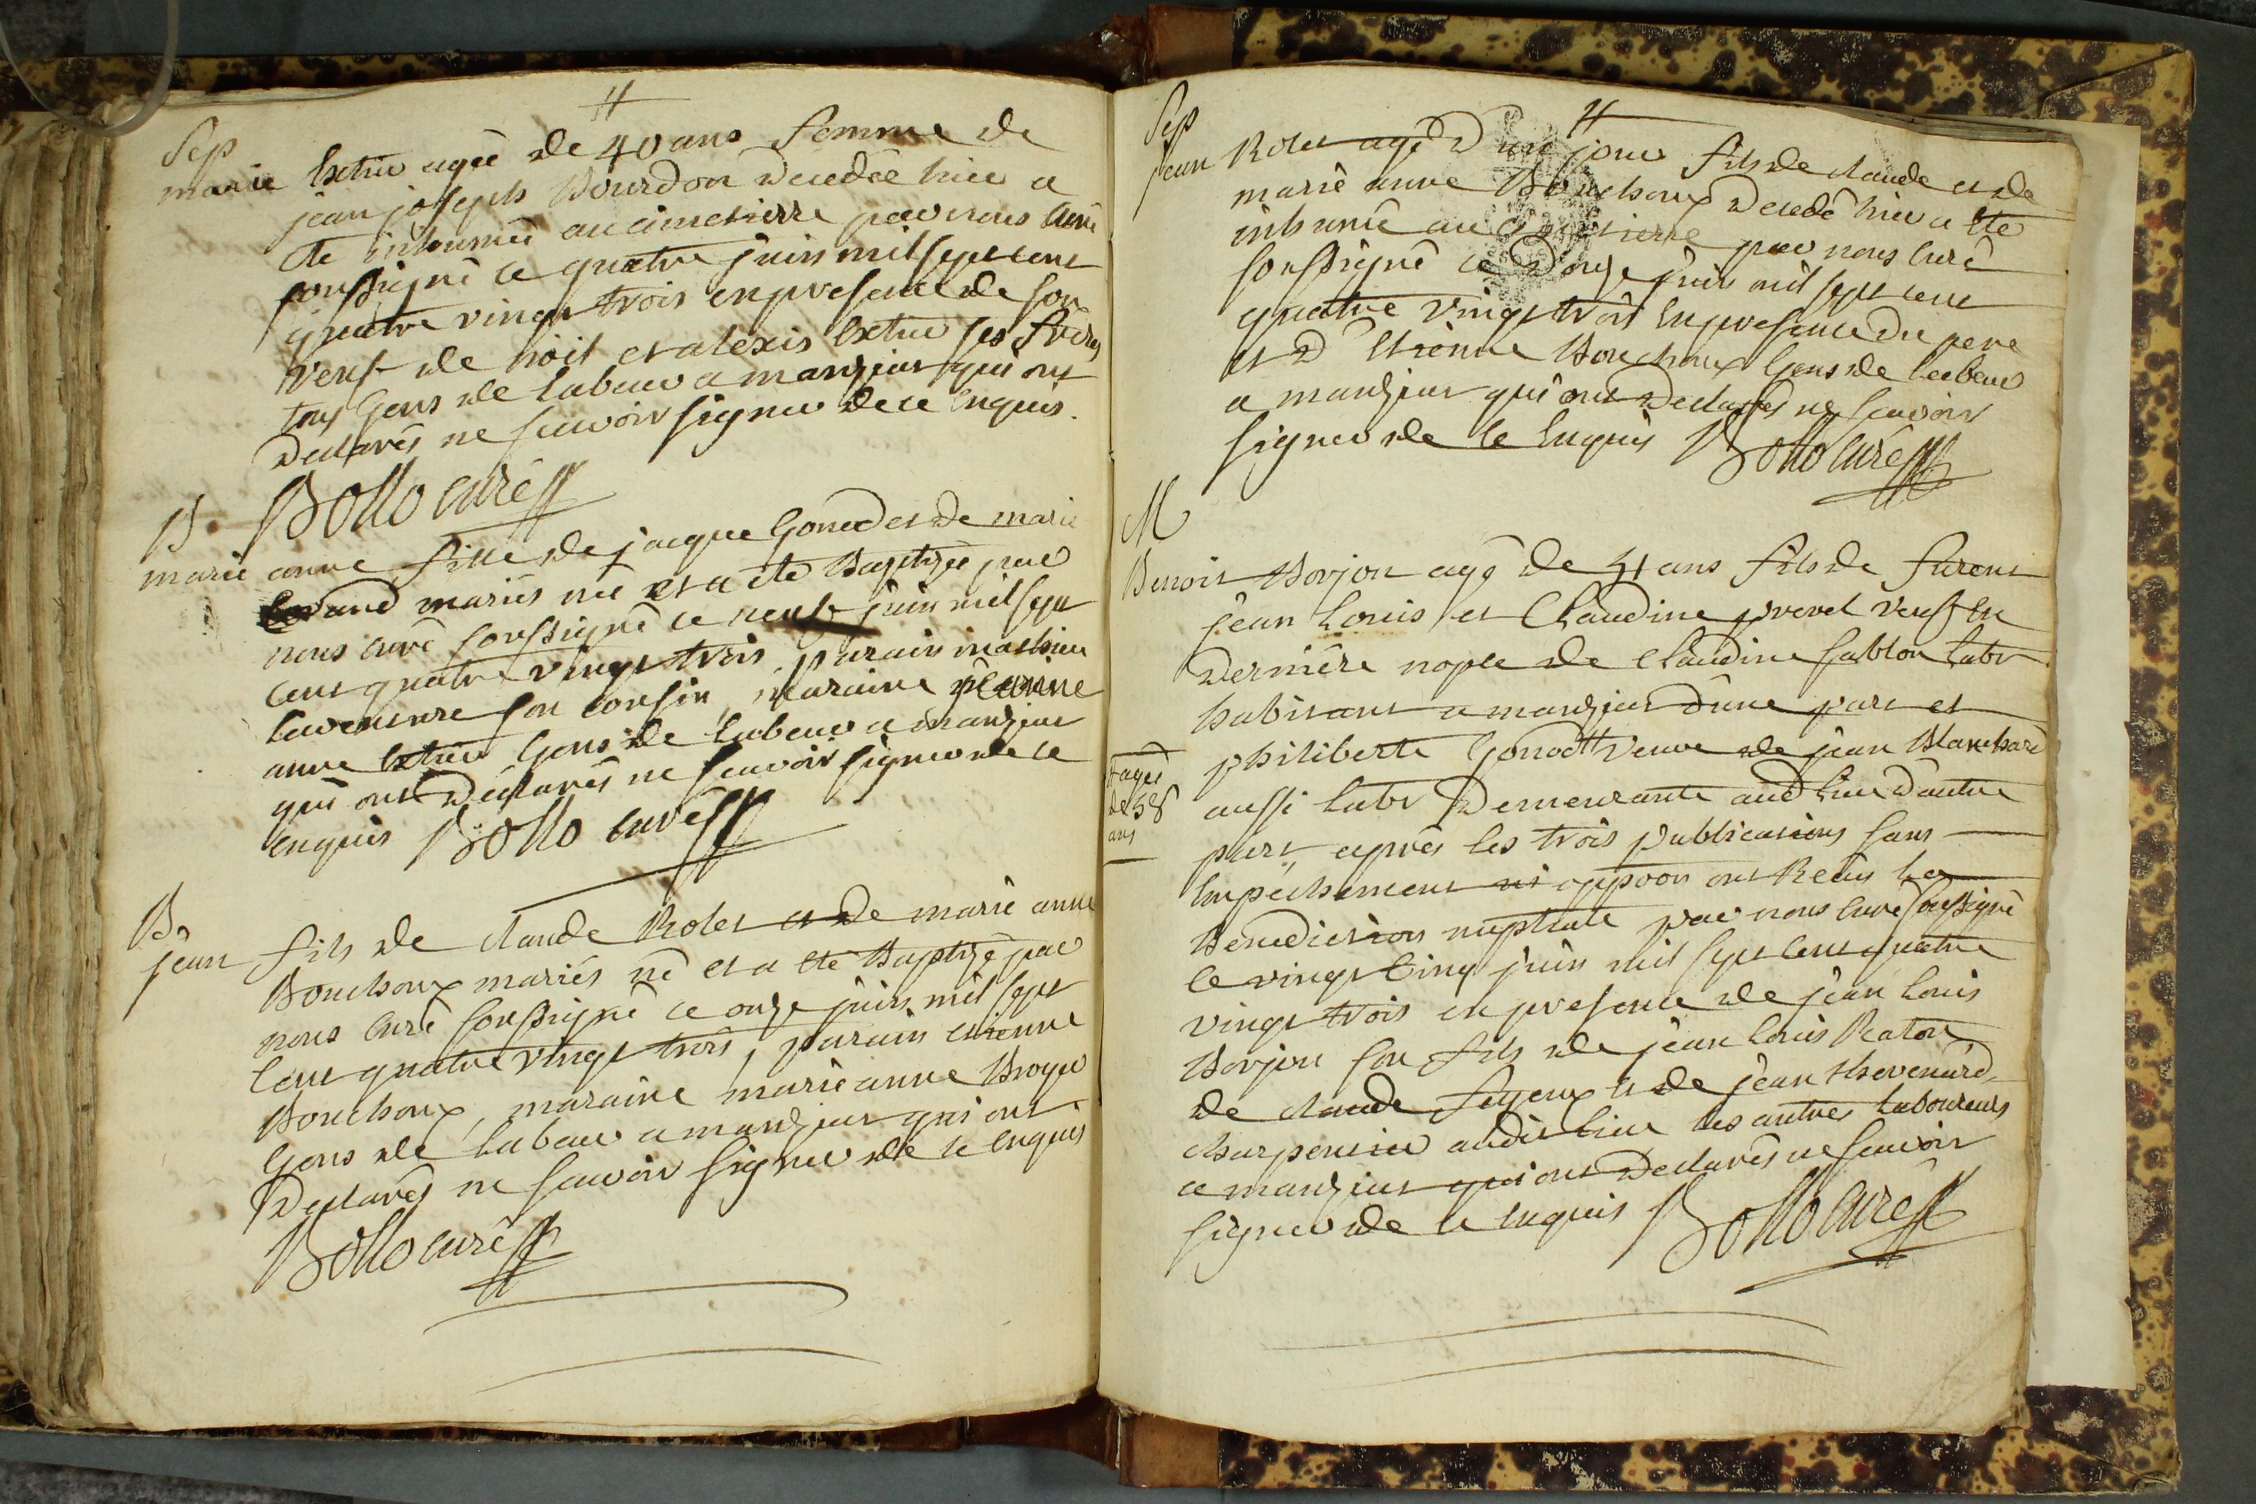 Sep
marie Extier agée de 40 ans femme de
jean joseph Bourdon decedée hier a
éte inhumée au cimetierre par nous curé
soussigné ce quatre juin mil sept cent
quatre vingt trois en presence de son
veuf de noil et alexis Extier ses frères
tous Gens de labeur a manziat qui ont
declarés ne scavoir signer de ce enquis.
Bollo curé
B.
marie anne fille de jacque Gonod et de marie
mariés née et a éte Baptizée par
nous curé soussigné ce neuf juin mil sept
cent quatre vingt trois, parain mathieu
laventure son cousin, maraine pierrine
anne Extier Gens de labeur a manziat
qui ont declarés ne scavoir signer de ce
enquis Bollo curé
B.
jean fils de claude Rolet et de marie anne
Bouchoux mariés né et a éte Baptizé par
nous curé soussigné ce onze juin mil sept
cent quatre vingt trois, parain etienne
Bouchoux, maraine marie anne Broyer
Gens de labeur a manziat qui ont
declarés ne scavoir signer de ce enquis
Bollo curé
Sep
jean Rolet agé d'un jour fils de claude et de
marie anne Bouchoux decedé hier a éte
inhumé au cimetierre par nous curé
soussigné ce douze juin mil sept cent
quatre vingt trois en presence du pere
et d'Etienne Bouchoux Gens de labeur
a manziat qui ont declarés ne scavoir
signer de ce enquis Bollo curé
M
Benoit Borjon agé de 41 ans fils de furent
jean Louis et Claudine prevel veuf en
derniére nopce de Claudine sablon labr
habitant a manziat d'une part et
philiberte Gonod # veuve de jean Blanchard
# agée
de 58
ans
aussi labr demeurante aud lieu d'autre
part, aprés les trois publications sans
Empéchement ni oppoon ont Recûs la
Benediction nuptiale par nous curé soussigné
le vingt cinq juin mil sept cent quatre
vingt trois en presence de jean Louis
Borjon son fils de jean Louis Raton
de claude feyeux et de jean thevenard
charpentier audit lieu les autres laboureurs
a manziat qui ont declarés ne scavoir
signer de ce enquis Bollo curé